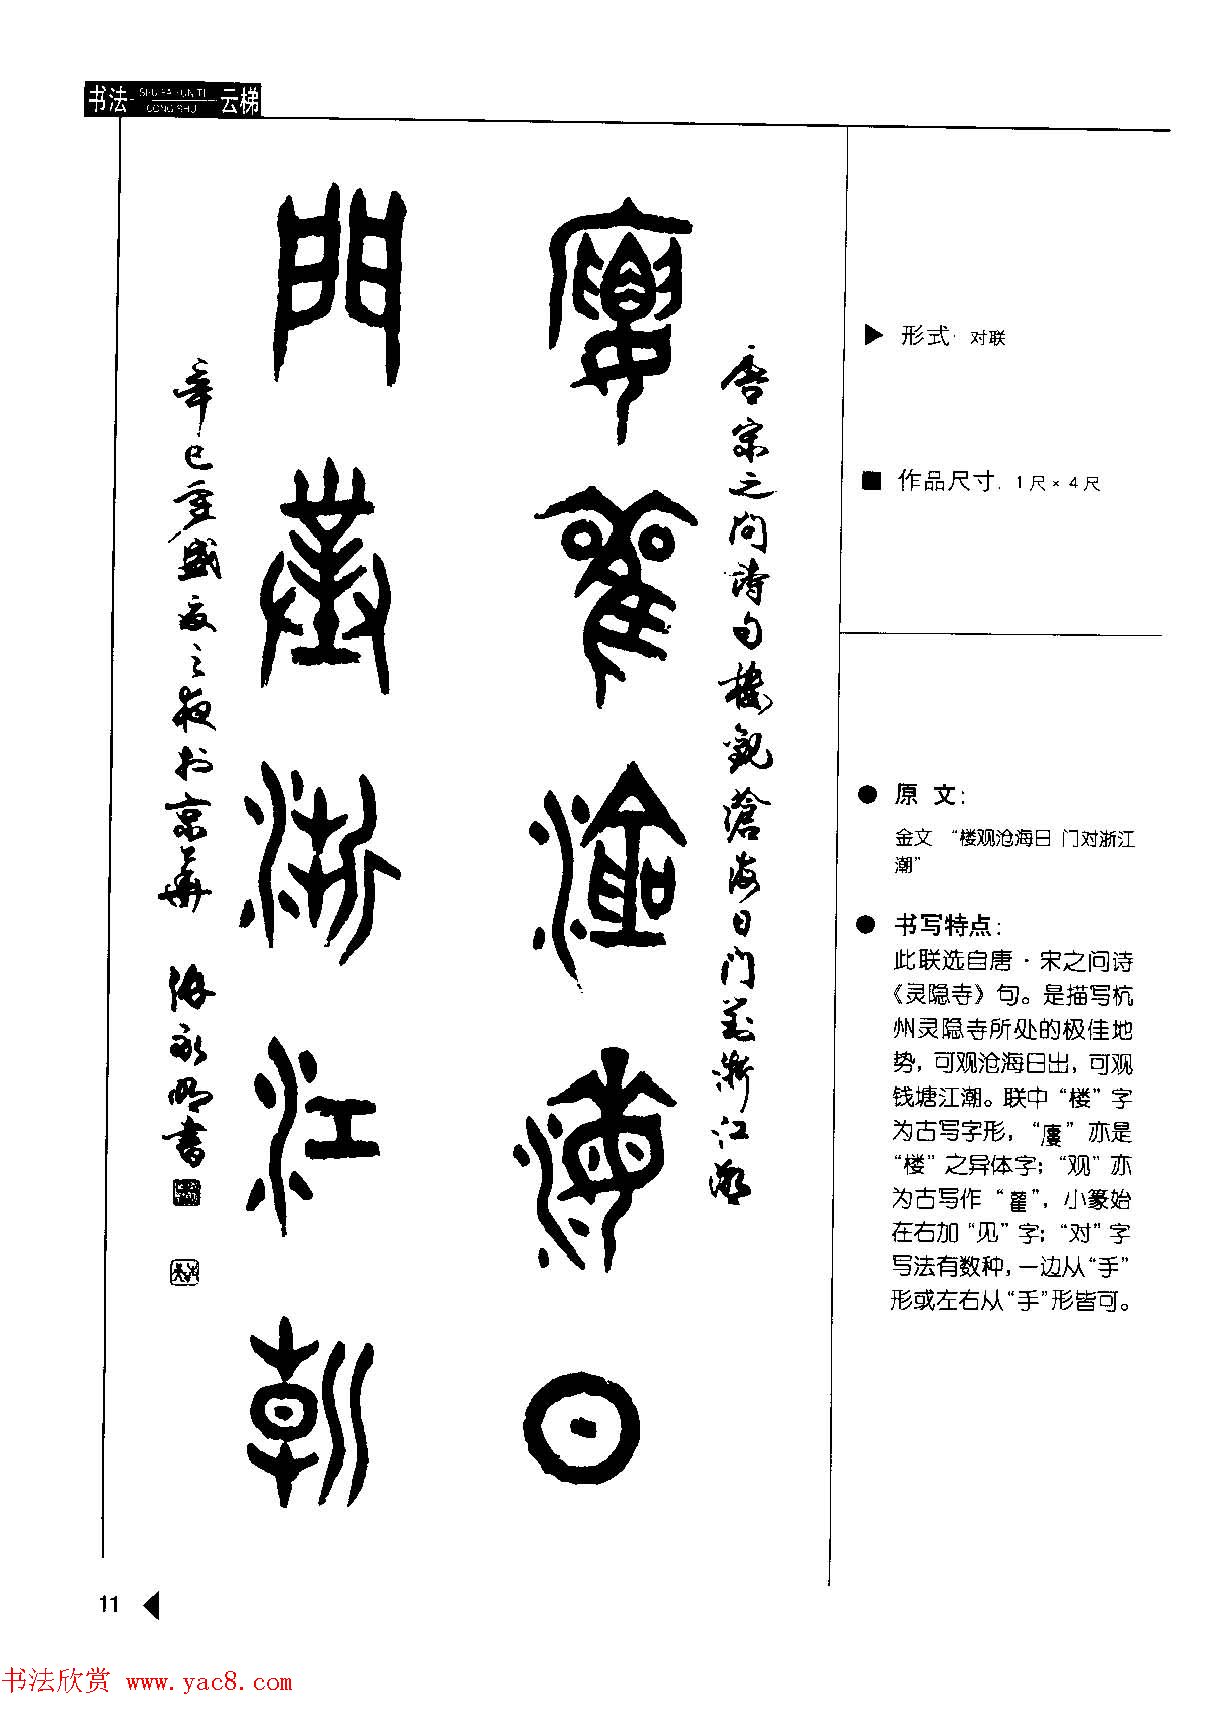 书法 SHU FA YUN TI 云梯
CONG SHU
廔雚滄海日
門對浙江朝
唐宋之问诗句楼觀滄海日门对浙江潮
辛巳重盛夏之夜于京华 张永明書
▶ 形式· 对联
■ 作品尺寸. 1尺×4尺
● 原 文:
金文 “楼观沧海日 门对浙江
潮”
● 书写特点:
此联选自唐·宋之问诗
《灵隐寺》句。是描写杭
州灵隐寺所处的极佳地
势, 可观沧海日出, 可观
钱塘江潮。联中“楼”字
为古写字形, “廔”亦是
“楼”之异体字; “观”亦
为古写作“雚”, 小篆始
在右加“见”字; “对”字
写法有数种, 一边从“手”
形或左右从“手”形皆可。
11
书法欣赏 www.yac8.com